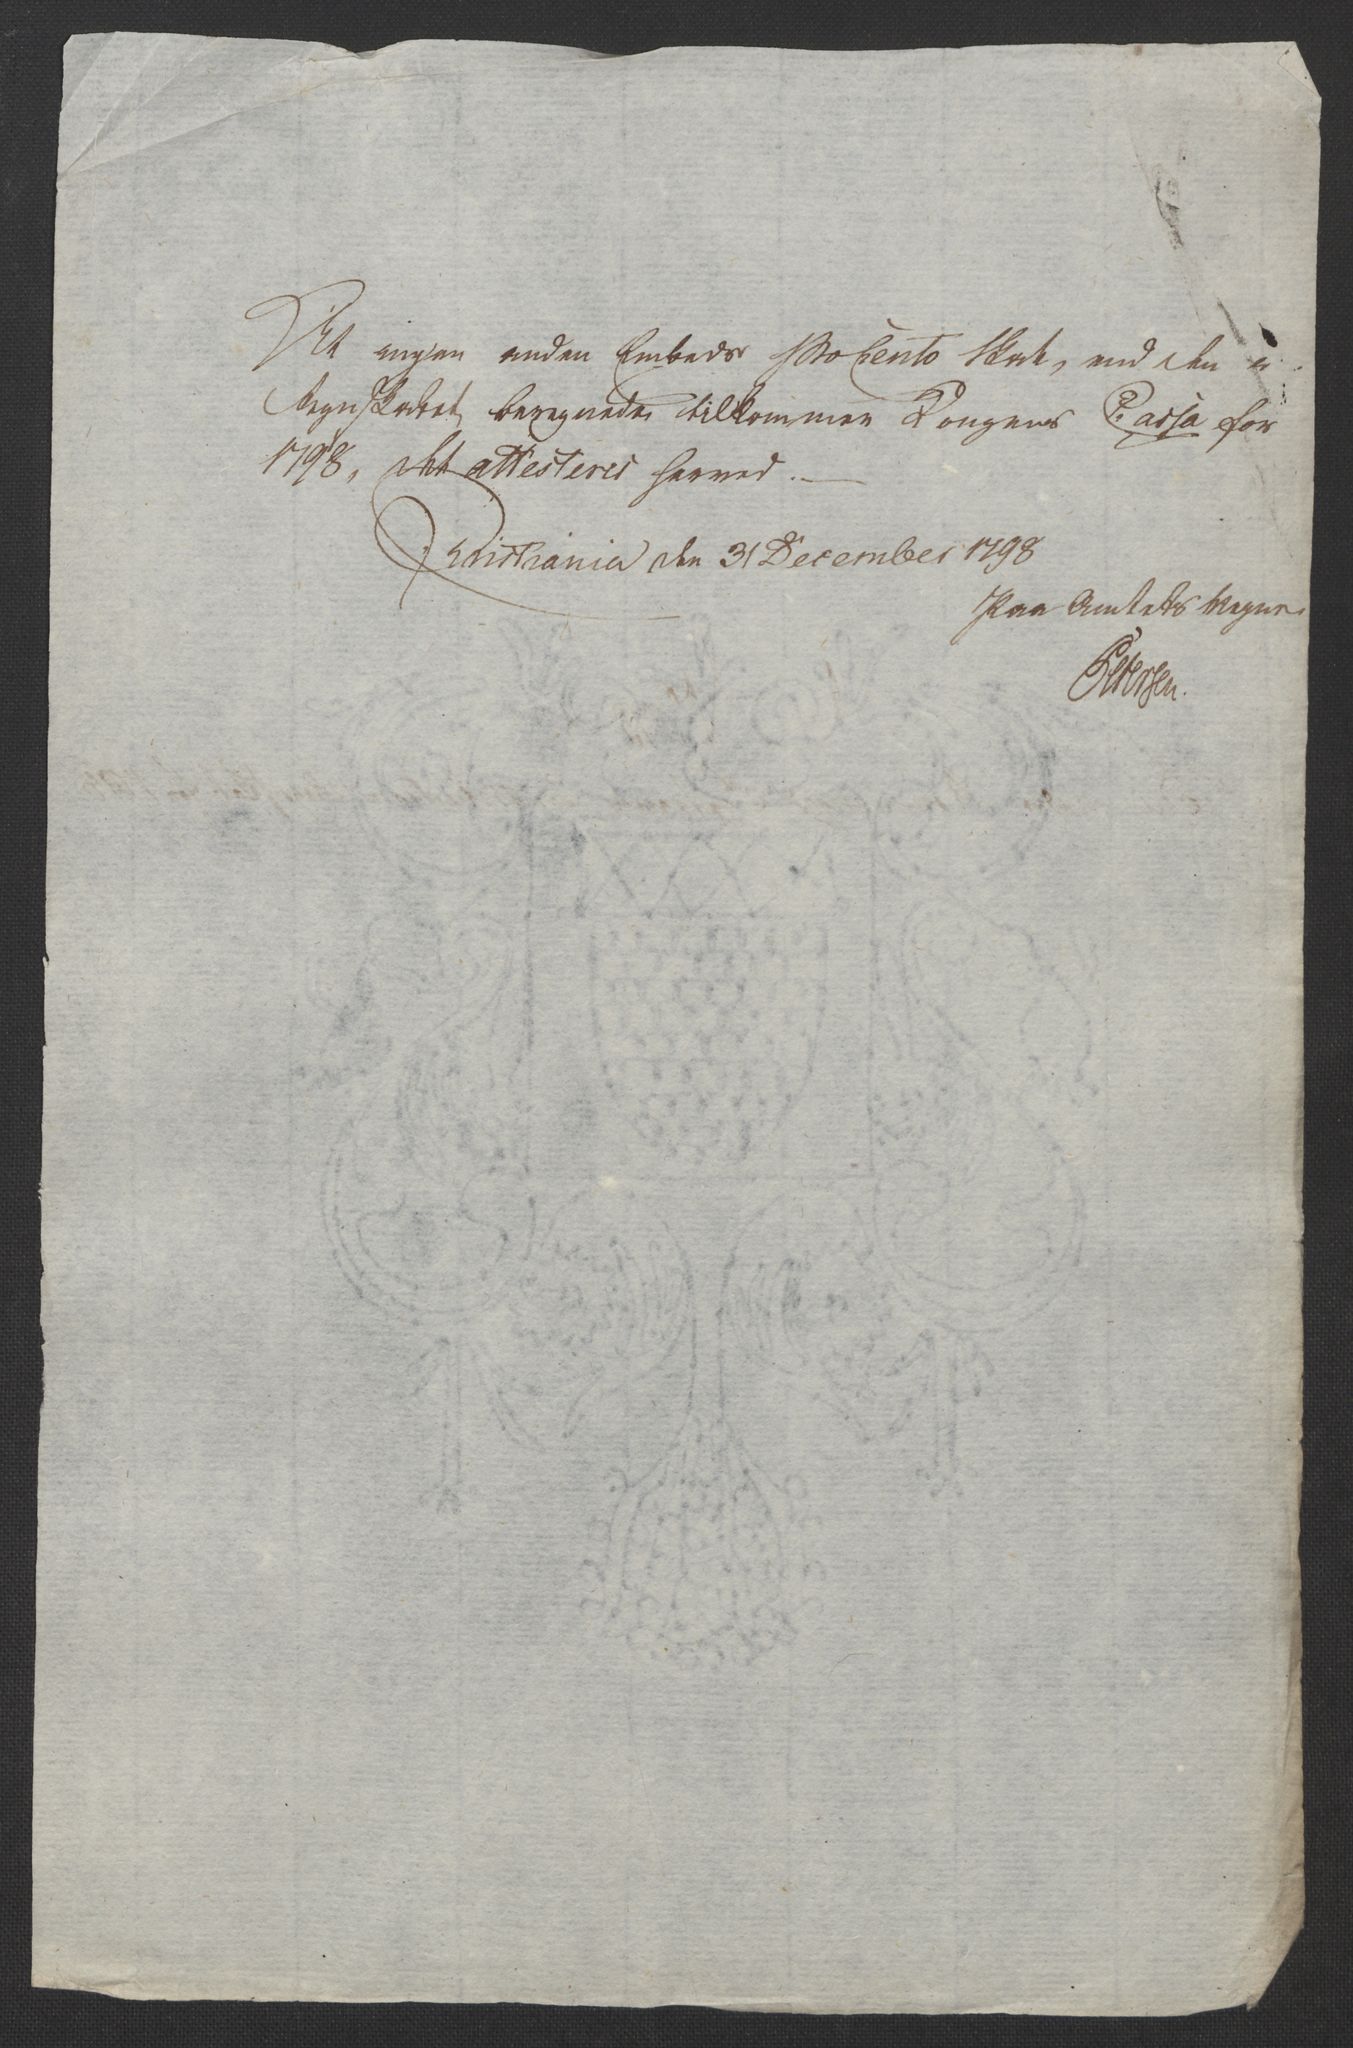 At ingen anden Embeds ProCento Skat, end den i
Regnskabet beregnede tilkommer Kongens Cassa for
1798, det attesteres herved.
Christiania den 31 December 1798
Paa Amtets Vegne
Petersen.